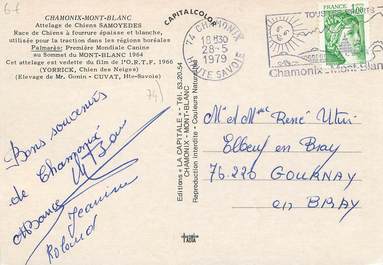 CHAMONIX-MONT-BLANC
Attelage de Chiens SAMOYEDES
Race de Chiens à fourrure épaisse et blanche,
utilisée pour la traction dans les régions boréales
Palmarès: Première Mondiale Canine
au Sommet du MONT-BLANC 1964
Cet attelage est vedette du film de l'O.R.T.F. 1966
(YORRICK, Chien des Neiges)
(Elevage de Mr. Gonin - CUVAT, Hte-Savoie)
74
Bons souvenirs
de Chamonix
Jeanine
Roland
CAPITALCOLOR
Editions « LA CAPITALE » - Tél. 53.20.54
CHAMONIX - MONT-BLANC
Reproduction Interdite - Couleurs Naturelles
74 CHAMONIX
18H30
28-5
1979
HTE SAVOIE
TOUS
Chamonix - Mont-Blanc
1,00
Mr et Mme René
Elbeuf en Bray
76220 GOURNAY
en BRAY